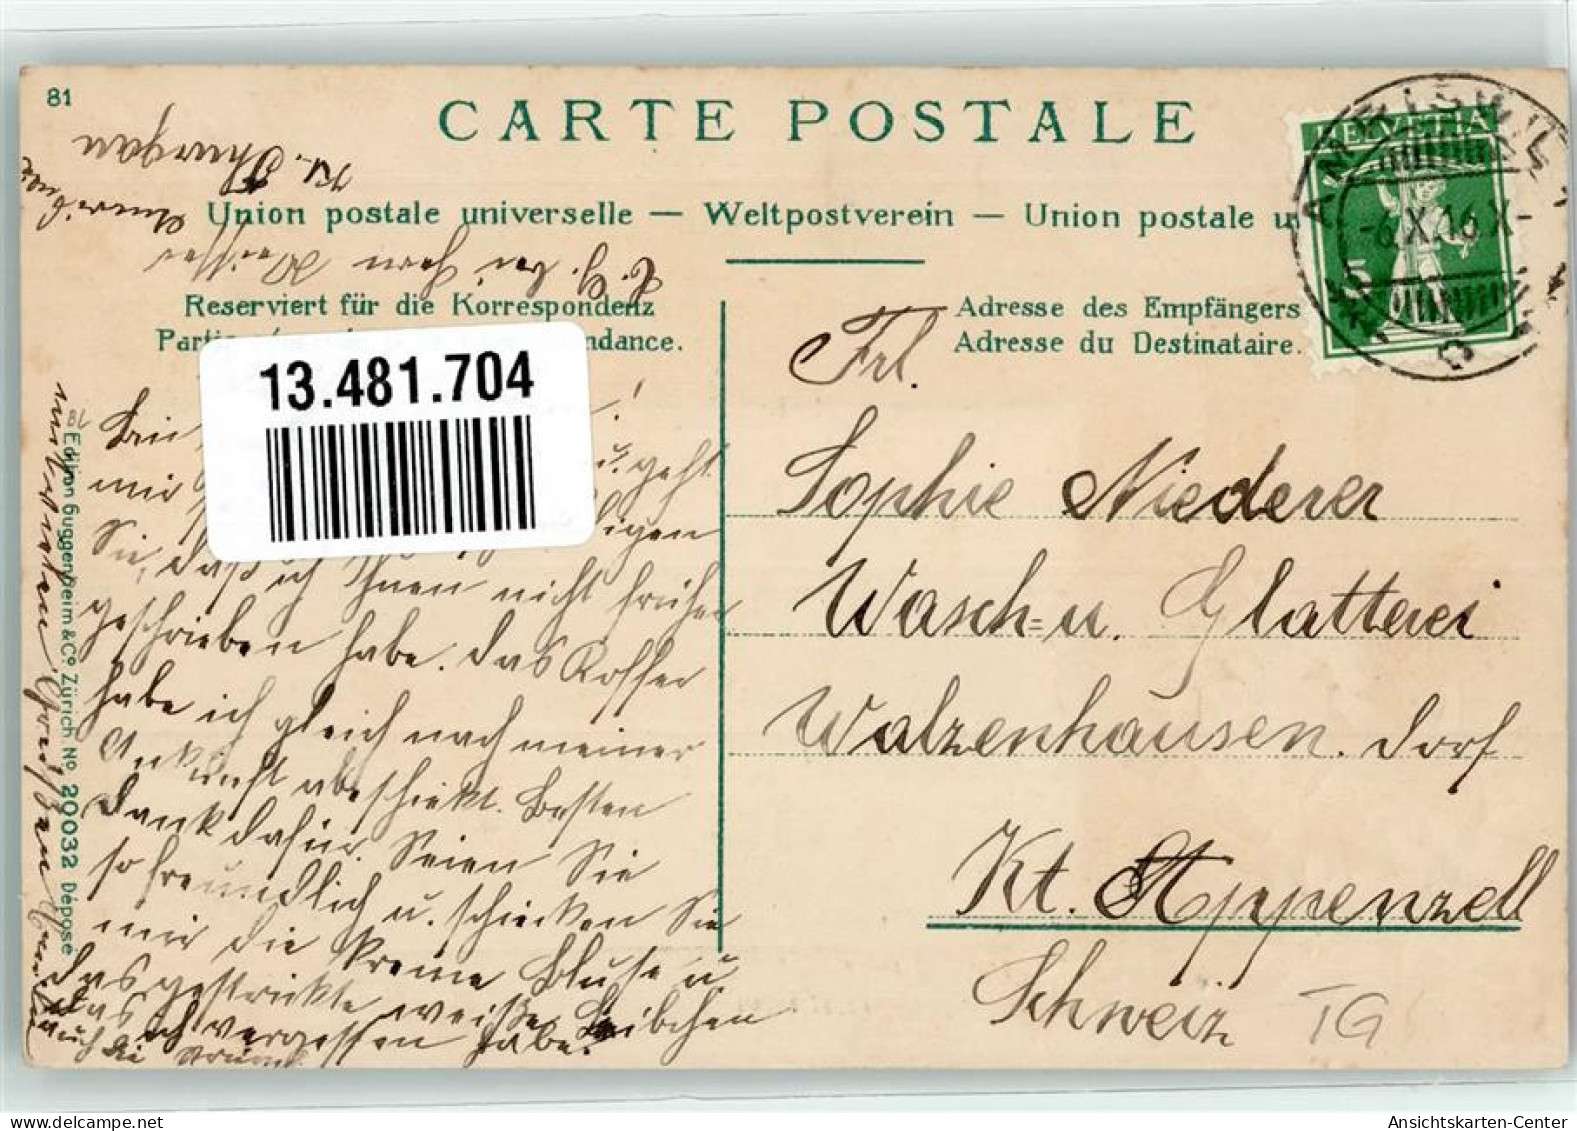 81
CARTE POSTALE
Kt. Thurgau
Union postale universelle — Weltpostverein — Union postale u
bei Herrn
Reserviert für die Korrespondenz
Adresse des Empfängers
ndance.
Adresse du Destinataire.
HELVETIA
5
AMRISWIL
-6.X.16.X-
13.481.704
Frl.
Sophie Niederer
Wasch= u. Glätterei
Walzenhausen. Dorf
Kt. Appenzell
Schweiz
TG
mir u. geht
igen
Sie, daß ich Ihnen nicht früher
geschrieben habe. Das Koffer
habe ich gleich nach meiner
Ankunft abeschickt. Besten
Dank dafür. Seien Sie
so freundlich u. schicken Sie
mir die kreme Bluse u.
das gestrickte weiße Leibchen
das ich vergessen habe.
auch die
Edition Guggenheim & Co. Zürich No. 20032 Déposé
Ansichtskarten-Center